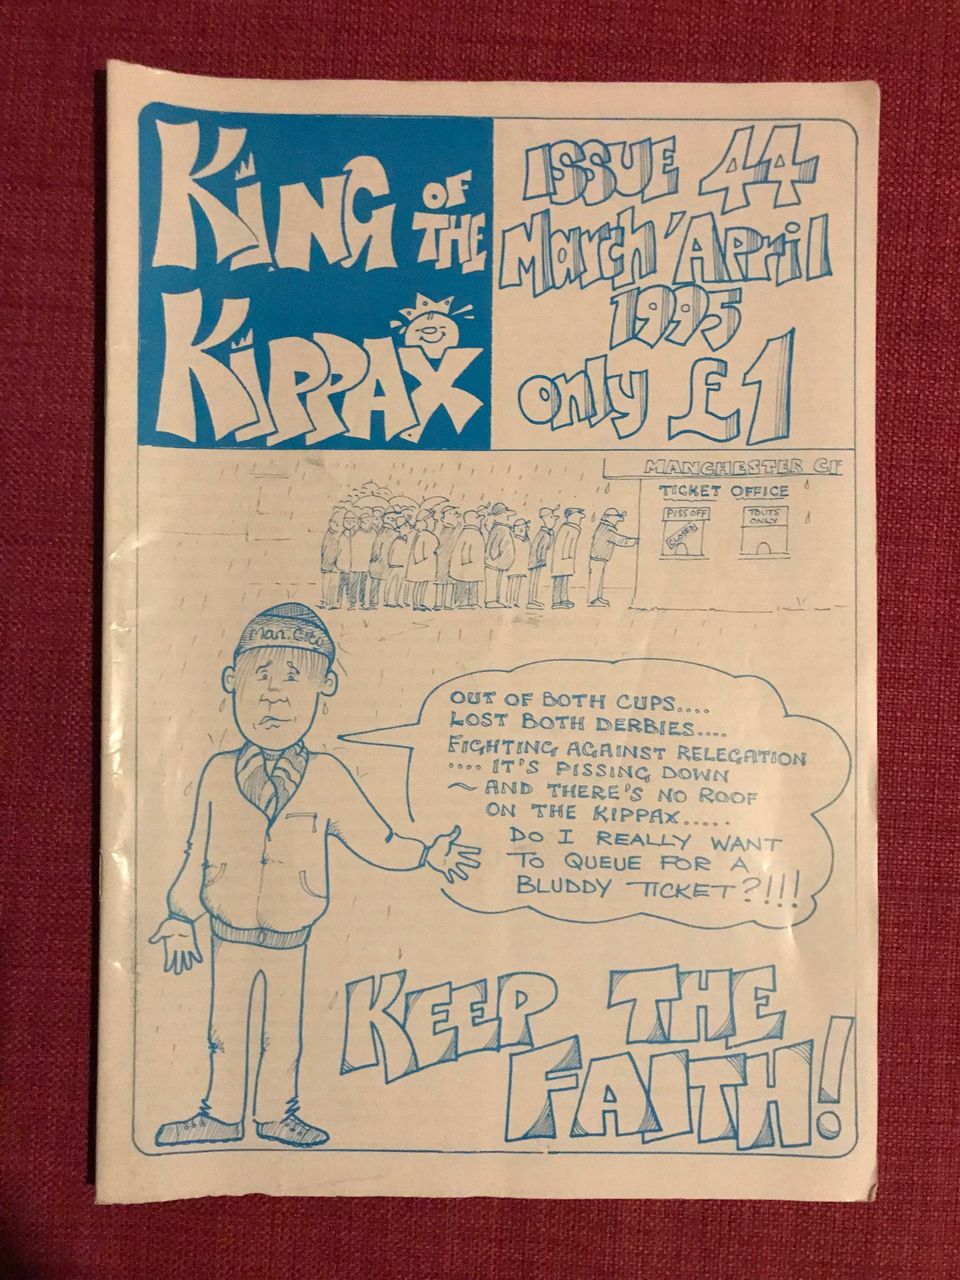 KiNG OF THE
KiPPAX
ISSUE 44
March 'April
1995
only £1
MANCHESTER CI
TICKET OFFICE
PISS OFF
CLOSED
TOUTS
ONLY
Man. City
OUT OF BOTH CUPS....
LOST BOTH DERBIES....
FIGHTING AGAINST RELEGATION
.... IT'S PISSING DOWN
~ AND THERE'S NO ROOF
ON THE KIPPAX.....
DO I REALLY WANT
TO QUEUE FOR A
BLUDDY TICKET?!!!
KEEP THE
FAITH!